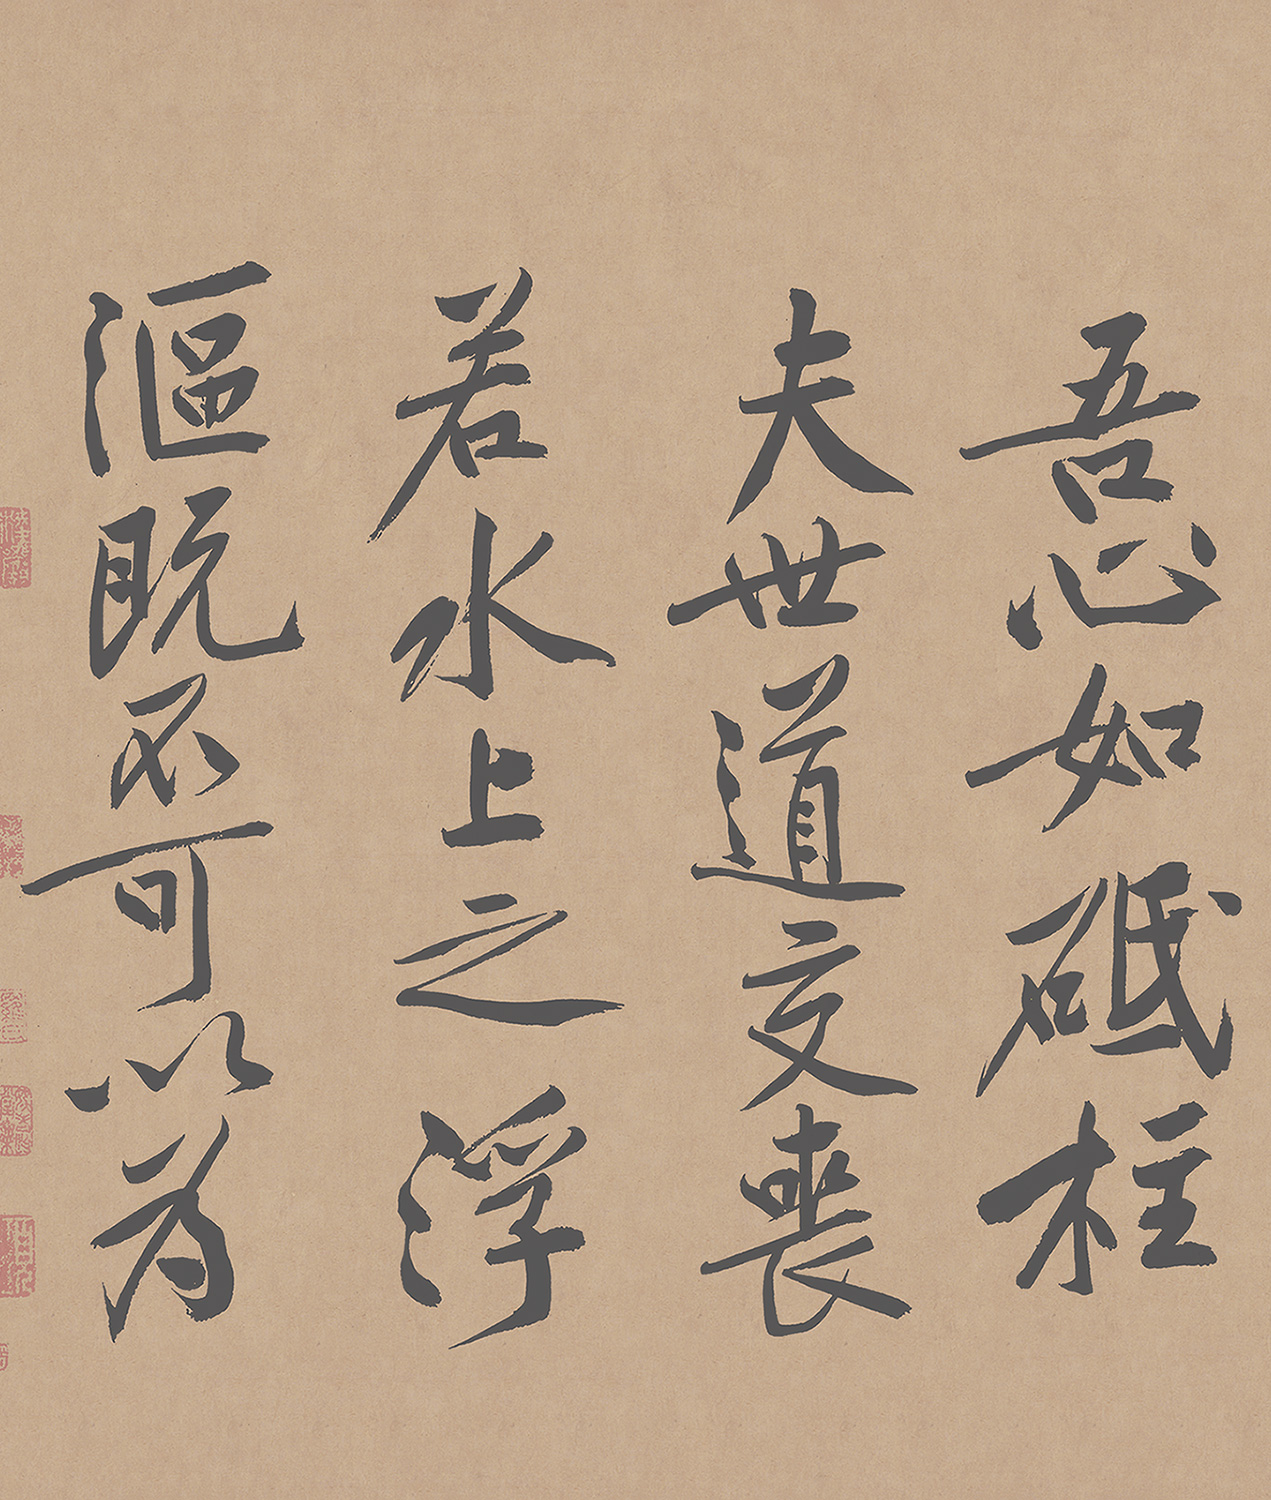 吾心如砥柱
夫世道交喪
若水上之浮
漚既不可以為